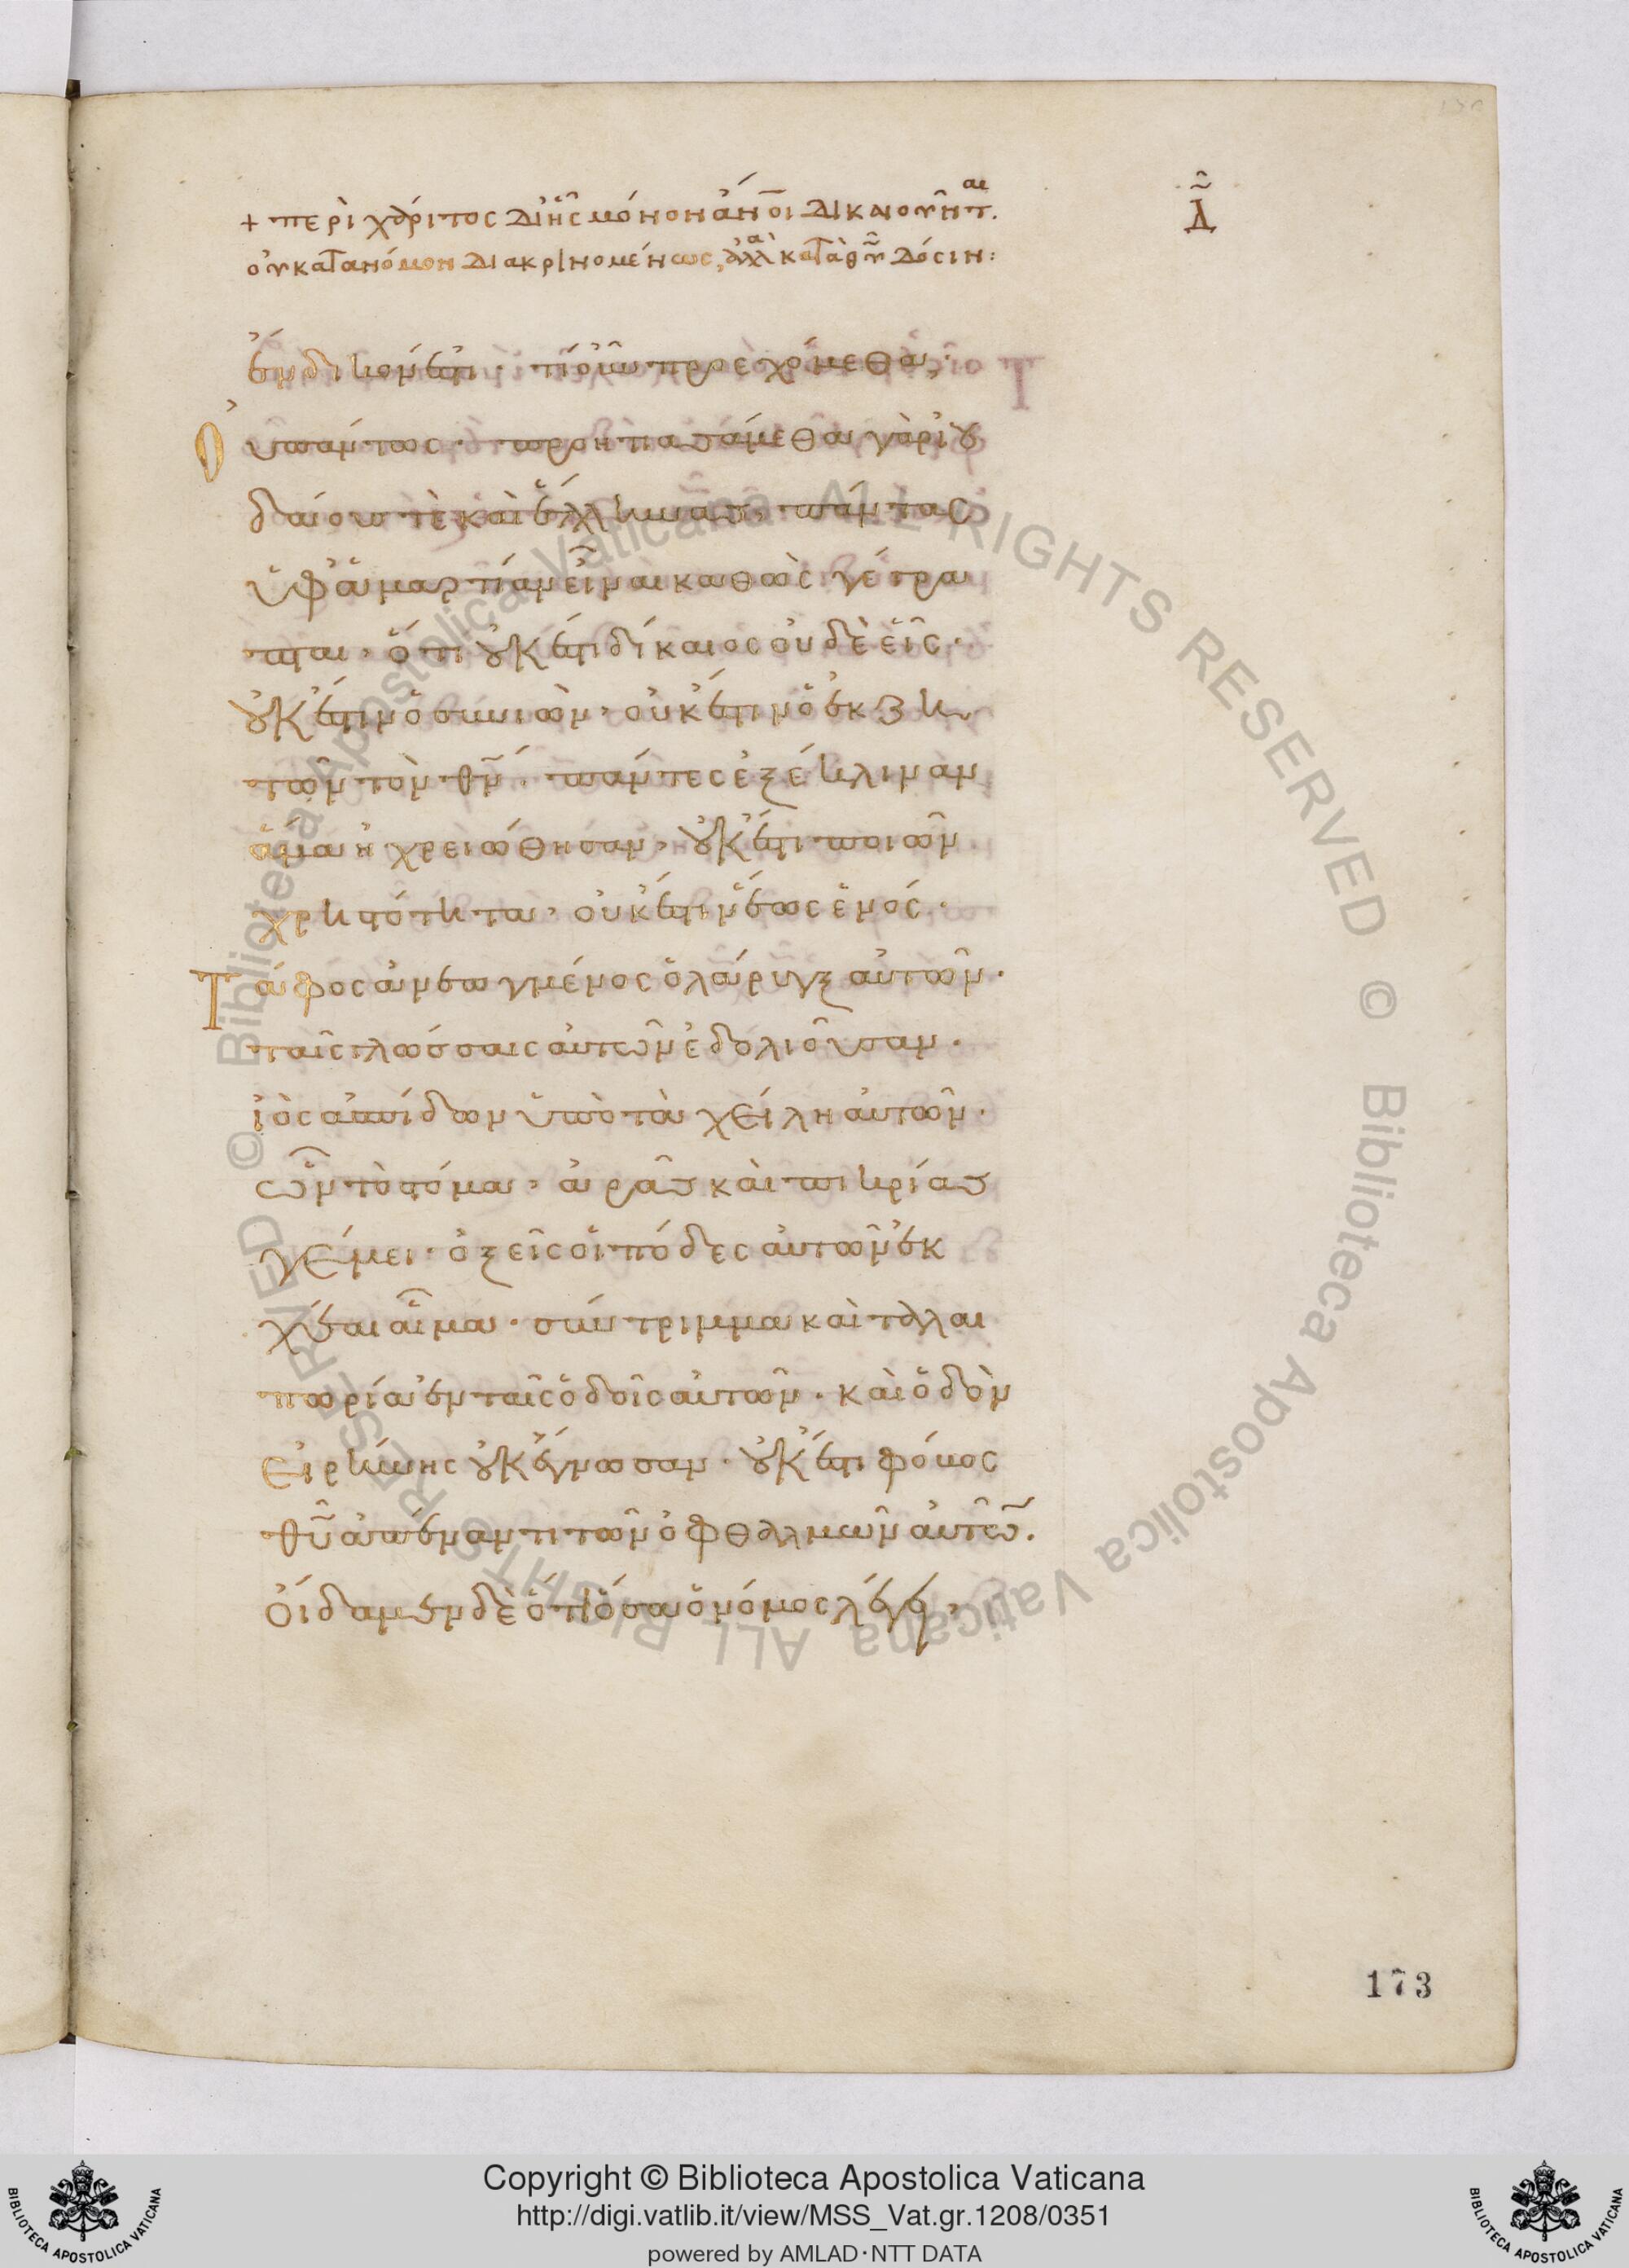 + περὶ χάριτος δι' ἧς μόνον ἄνοι δικαιοῦνται.
Δ
οὐ κατὰ νόμον διακρινομένως, ἀλλὰ κατὰ θυ δόσιν:
ἔνδικόν ἐστι. τί οὖν προεχόμεθα;
Οὐ πάντως. προητιασάμεθα γὰρ ἰου
δαίους τὲ καὶ ἕλληνας, πάντας
ὑφ' ἁμαρτίαν εἶναι καθὼς γέγρα
πται. ὅτι οὐκ ἔστι δίκαιος οὐδὲ εἷς.
οὐκ ἔστιν ὁ συνιὼν, οὐκ ἔστιν ὁ ἐκζη
τῶν τὸν θν. πάντες ἐξέκλιναν
ἅμα ἠχρειώθησαν, οὐκ ἔστι ποιῶν
χρηστότητα, οὐκ ἔστιν ἕως ἑνός.
Τάφος ἀνεωγμένος ὁ λάρυγξ αὐτῶν.
ταῖς γλώσσαις αὐτῶν ἐδολιοῦσαν.
ἰὸς ἀσπίδων ὑπὸ τὰ χείλη αὐτῶν.
ὧν τὸ στόμα, ἀρᾶς καὶ πικρίας
γέμει. ὀξεῖς οἱ πόδες αὐτῶν ἐκ
χέαι αἷμα. σύντριμμα καὶ ταλαι
πωρία ἐν ταῖς ὁδοῖς αὐτῶν. καὶ ὁδὸν
εἰρήνης οὐκ ἔγνωσαν. οὐκ ἔστι φόβος
θυ ἀπέναντι τῶν ὀφθαλμῶν αὐτῶν.
Οἴδαμεν δὲ ὅτι ὅσα ὁ νόμος λέγει,
173
© Biblioteca Apostolica Vaticana ALL RIGHTS RESERVED © Biblioteca Apostolica Vaticana ALL RIGHTS RESERVED
Copyright © Biblioteca Apostolica Vaticana
http://digi.vatlib.it/view/MSS_Vat.gr.1208/0351
powered by AMLAD·NTT DATA
BIBLIOTECA APOSTOLICA VATICANA
BIBLIOTECA APOSTOLICA VATICANA